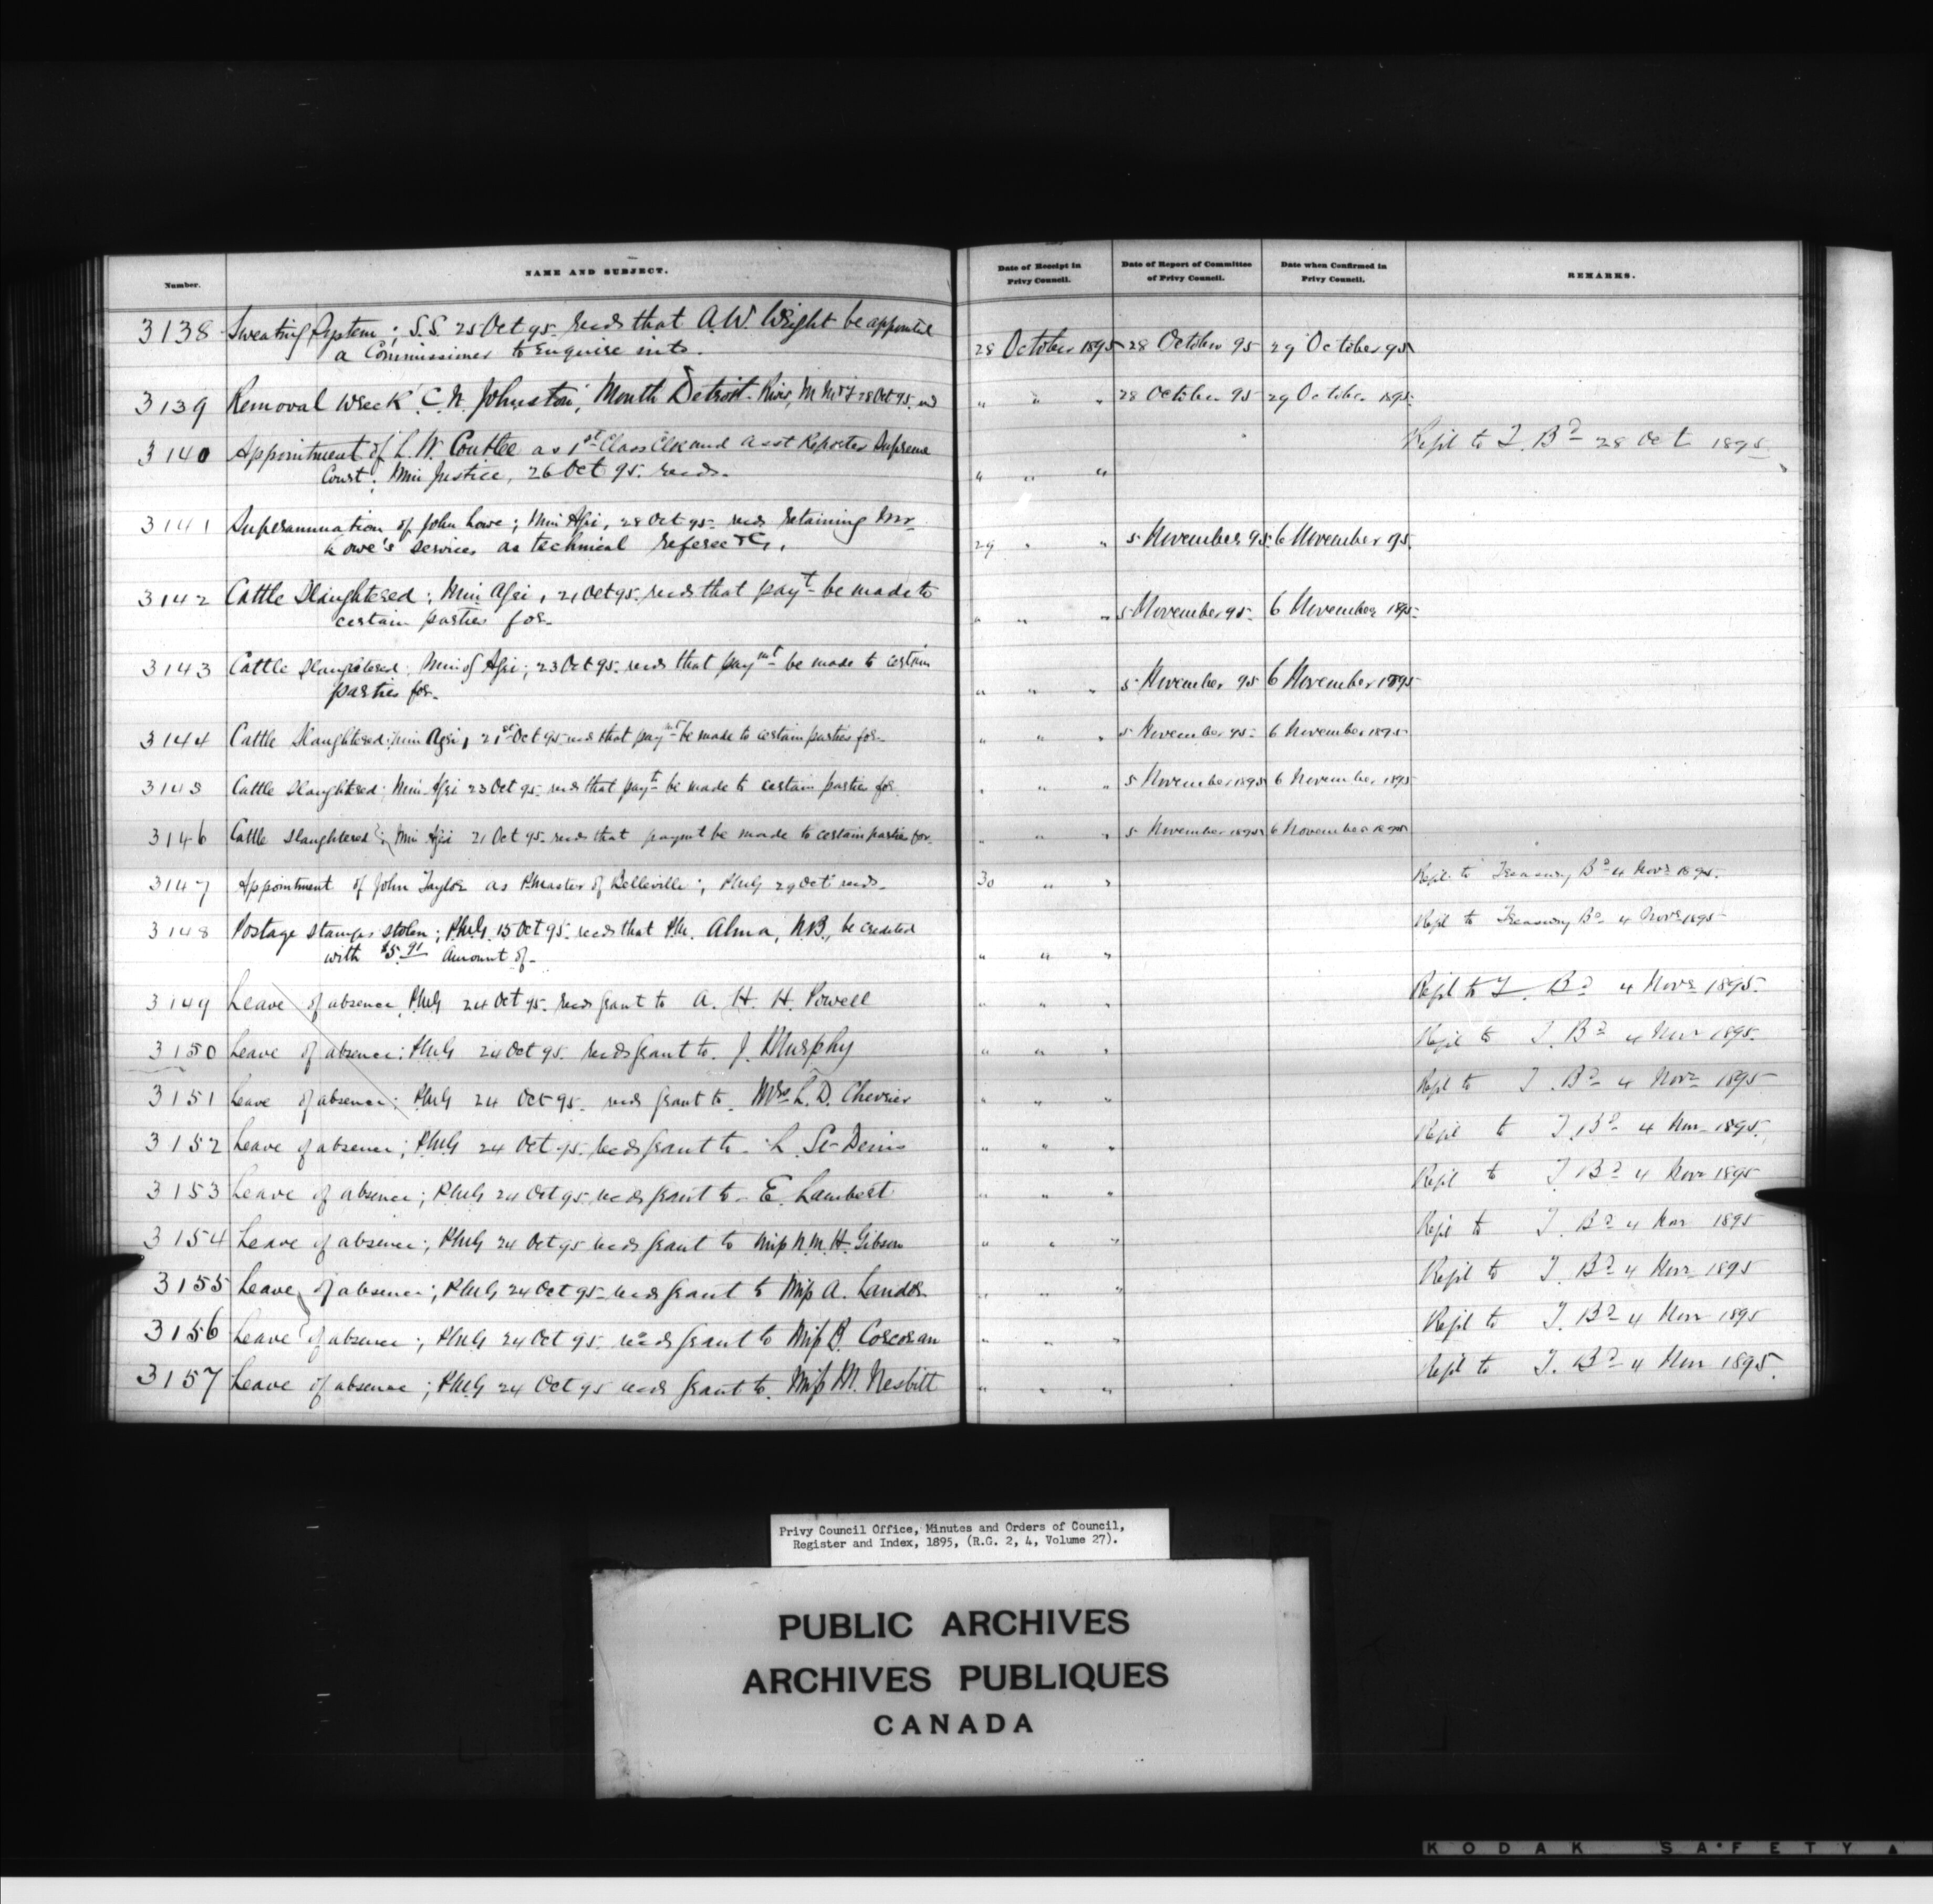 Number. NAME AND SUBJECT. Date of Receipt in Privy Council. Date of Report of Committee of Privy Council. Date when Confirmed in Privy Council. REMARKS.
3138 Sweating System; S.S. 25 Oct 95 recds that A.W. Wright be appointed
a Commissioner to enquire into. 28 October 1895 28 October 95 29 October 95
3139 Removal wreck "C.N. Johnston", Mouth Detroit River, M M & F 28 Oct 95 " " " 28 October 95 29 October 1895
3140 Appointment of L.W. Coutlee as 1st Class Clerk and Asst Reporter Supreme Repd to T. Bd 28 Oct 1895
Court; Min Justice, 26 Oct 95. recds. " " "
3141 Superannuation of John Lowe; Min Agri, 28 Oct 95 recds retaining Mr
Lowe's services as technical referee &c,. 29 " " 5 November 95 6 November 95.
3142 Cattle Slaughtered; Min Agri, 21 Oct 95. recds that payt be made to
certain parties for " " " 5 November 95 6 November 1895
3143 Cattle Slaughtered; Min of Agri; 23 Oct 95. recds that paymt be made to certain
parties for " " " 5 November 95 6 November 1895
3144 Cattle Slaughtered; Min Agri, 21st Oct 95 recds that paymt be made to certain parties for " " " 5 November 95 6 November 1895
3145 Cattle Slaughtered; Min Agri 23 Oct 95. recds that payt be made to certain parties for " " " 5 November 1895 6 November 1895
3146 Cattle Slaughtered; Min Agri 21 Oct 95. recds that paymt be made to certain parties for. " " " 5 November 1895 6 November 1895
3147 Appointment of John Taylor as PMaster of Belleville; PMG 29 Oct recds. 30 " " Repd to Treasury Bd 4 Novr 1895.
3148 Postage stamps stolen; PMG. 15 Oct 95. recds that PM. Alma, N.B., be credited Repd to Treasury Bd 4 Novr 1895
with $5.91 amount of " " "
3149 Leave of absence, PMG 24 Oct 95. recds grant to A. H. H. Powell " " " Repd to T. Bd 4 Novr 1895.
3150 Leave of absence; PMG 24 Oct 95. recds grant to. J. Murphy " " " Repd to T. Bd 4 Nov 1895.
3151 Leave of absence; PMG 24 Oct 95. recds grant to. Mrs L. D. Chevrier " " " Repd to T. Bd 4 Novr 1895
3152 Leave of absence; PMG 24 Oct 95. recds grant to. L. St-Denis " " " Repd to T. Bd 4 Nov 1895.
3153 Leave of absence; PMG 24 Oct 95 recds grant to. E. Lambert " " " Repd to T. Bd 4 Nov 1895
3154 Leave of absence; PMG 24 Oct 95 recds grant to Miss N.M.H. Gibson " " " Repd to T. Bd 4 Nov 1895
3155 Leave of absence; PMG 24 Oct 95 recds grant to Miss A. Landor " " " Repd to T. Bd 4 Nov 1895
3156 Leave of absence; PMG 24 Oct 95. recds grant to Miss B. Corcoran " " " Repd to T. Bd 4 Nov 1895
3157 Leave of absence; PMG 24 Oct 95 recds grant to. Miss M. Nesbitt " " " Repd to T. Bd 4 Nov 1895.
Privy Council Office, Minutes and Orders of Council,
Register and Index, 1895, (R.G. 2, 4, Volume 27).
PUBLIC ARCHIVES
ARCHIVES PUBLIQUES
CANADA
KODAK SAFETY